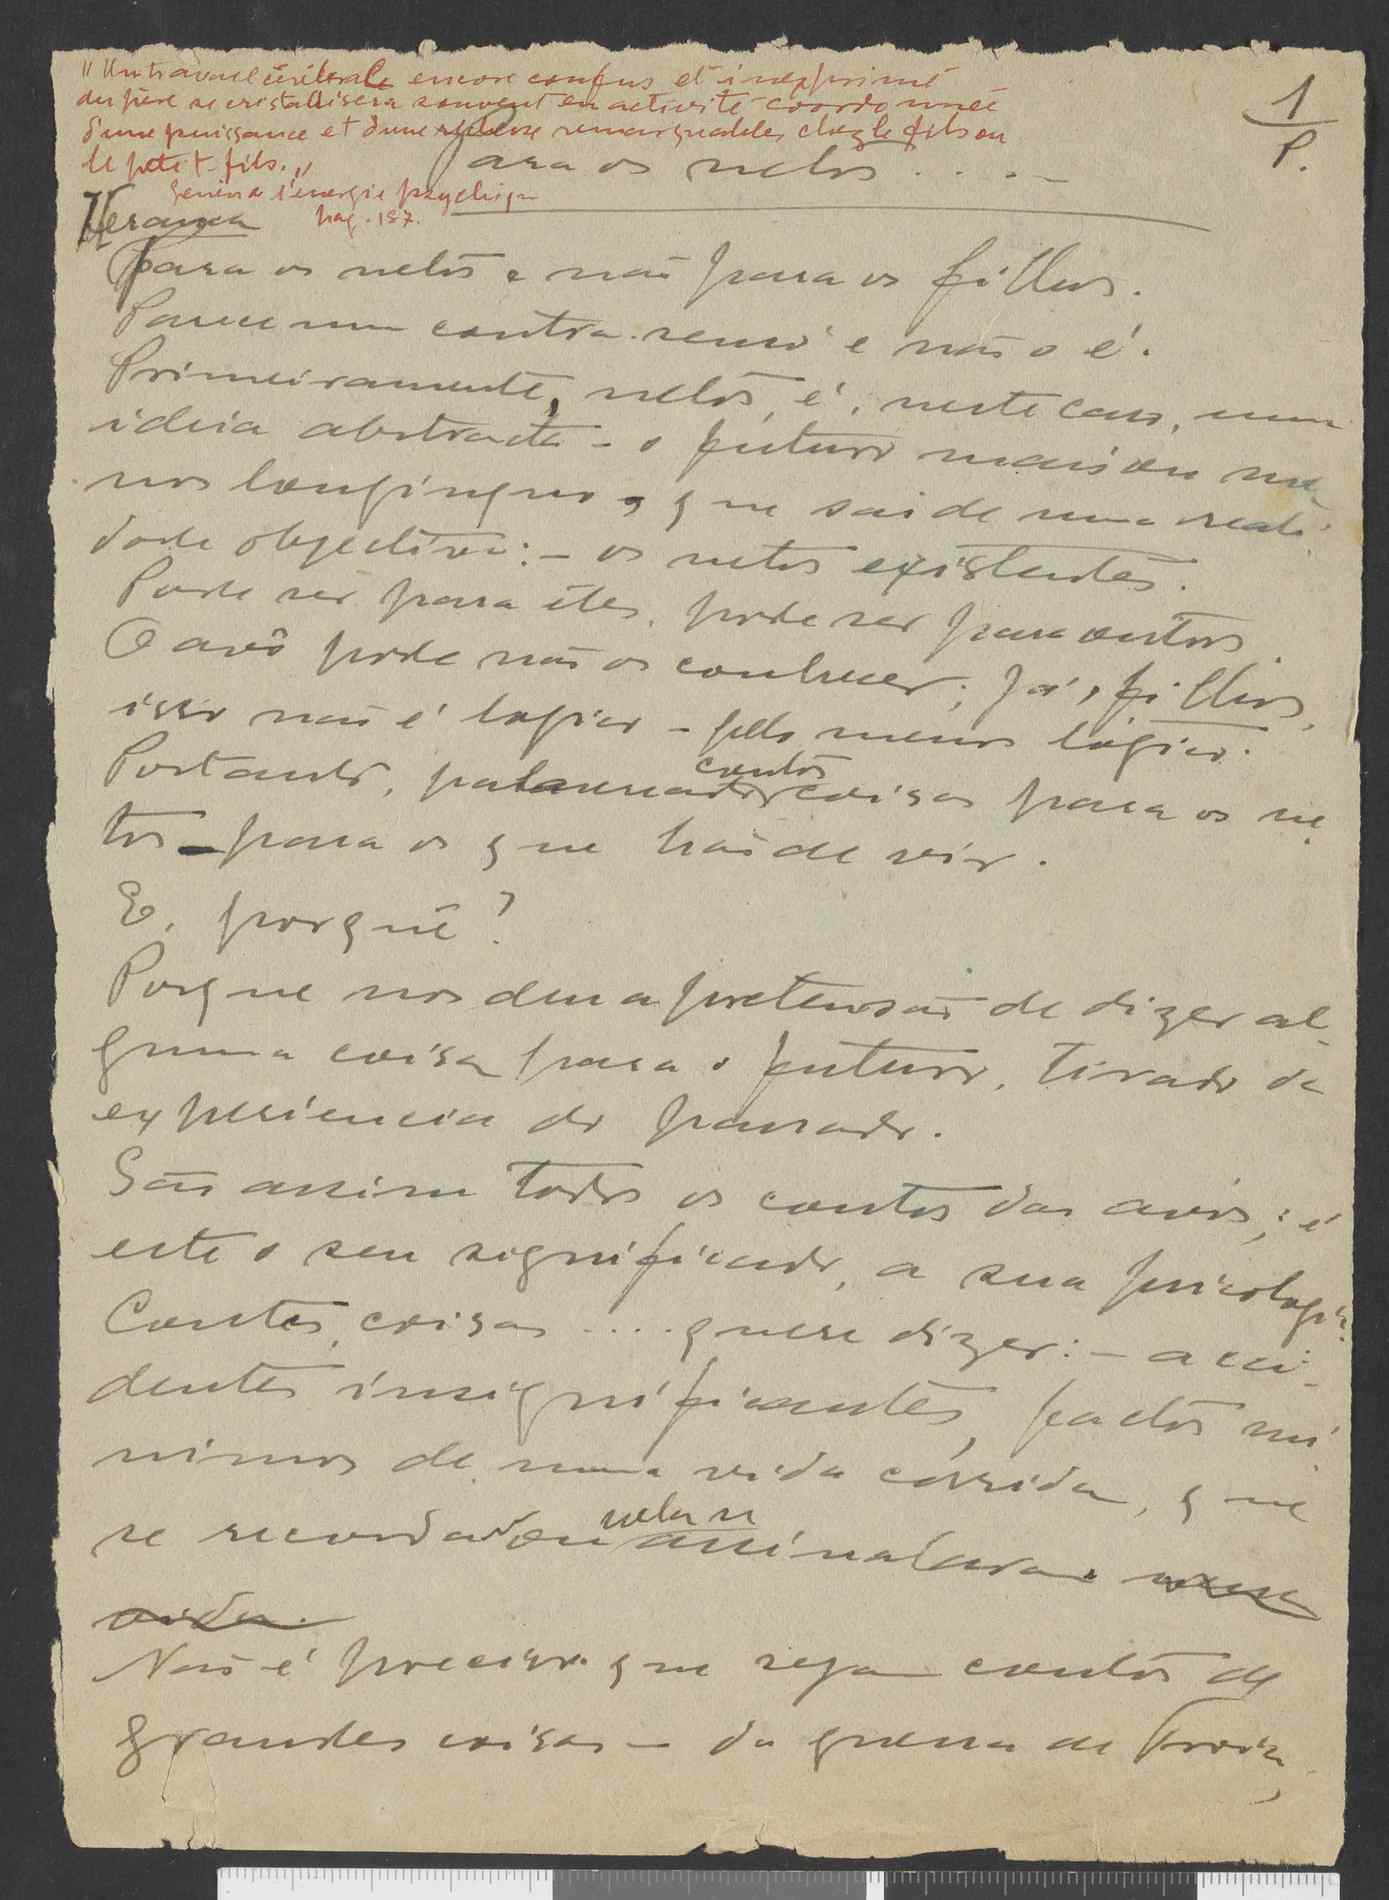 "Un travail cérébrale encore confus et inexprimé
du père se cristallisera souvent en activité coordonnée
d'une puissance et d'une richesse remarquables chez le fils ou
le petit-fils."
l'énergie psychique
pag. 187.
1
P.
Para os netos . . . . —
Herança
Para os netos e não para os filhos.
Parece um contra-senso e não o é.
Primeiramente, netos, é, neste caso, uma
ideia abstracta - o futuro mais ou me-
nos longinquo, que sai de uma reali-
dade objectiva: - os netos existentes.
Pode ser para êles, pode ser para outros.
O avô pode não os conhecer; já, filhos,
isso não é logico - pelo menos lógico.
contos
Portanto, coisas para os ne-
tos - para os que hão de vir.
E, porquê?
Porque nos deu a pretensão de dizer al-
guma coisa para o futuro, tirado da
experiencia do passado.
São assim todos os contos dos avós; é
este o seu significado, a sua psicologia.
Contos, coisas .... quere dizer: - aci-
dentes insignificantes, factos mi-
nimos de uma vida corrida, que
nela se
se recordam ou assinalaram
vida.
Não é preciso que sejam contos de
grandes coisas - da guerra de Troia,